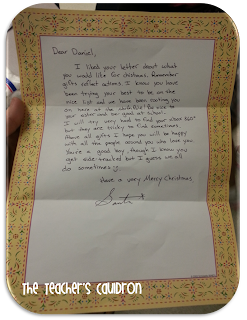 Dear Daniel,
I liked your letter about what
you would like for christmas. Remember
gifts reflect actions I know you have
been trying your best to be on the
nice list and we have been rooting you
on here at the north Pole! Be nice to
your sister and be good at school.
I will try very hard to find your xbox 360
but they are tricky to find sometimes.
Above all gifts I hope you will be happy
with all the people around you who love you.
You're a good boy, though I know you
get side tracked but I guess we all
do sometimes :)
Have a very Merry Christmas
Santa
The Teacher's Cauldron